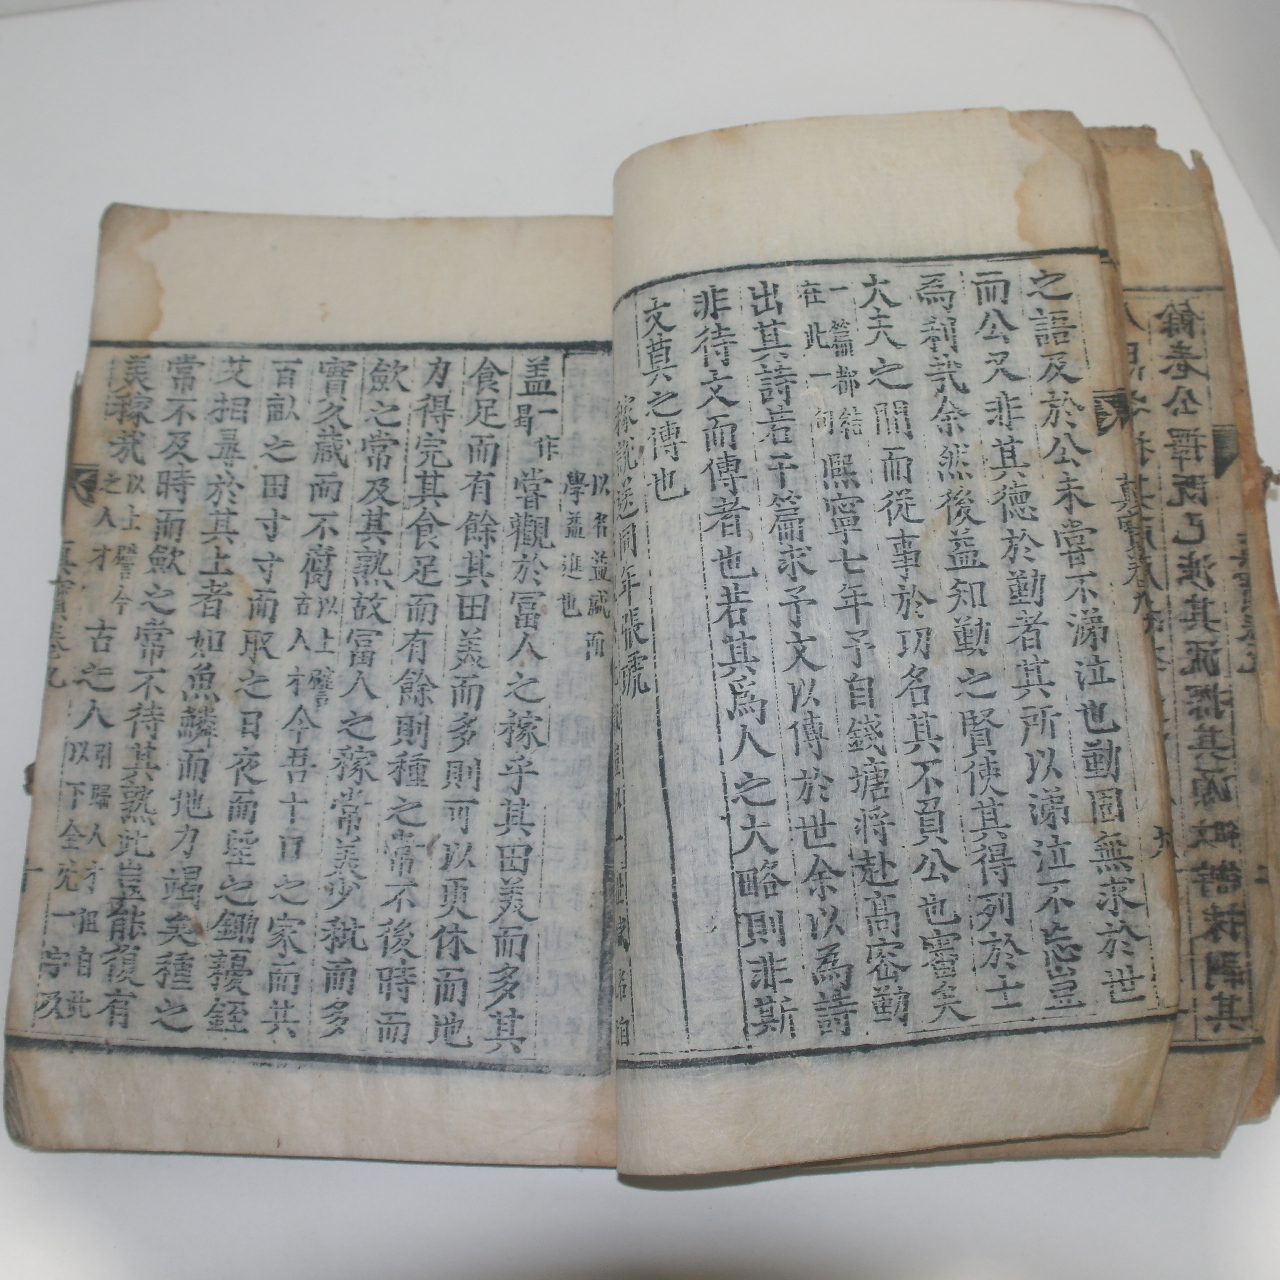 餘春公擇旣已涉其流探其源採剝其
之語及於公未嘗不涕泣也勤固無求於世
而公又非其德於勤者其所以涕泣不忘豈
爲利哉余然後益知勤之賢使其得列於士
大夫之間而從事於功名其不負公也審矣
一篇都結
在此一句
熙寧七年予自錢塘將赴高密勤
出其詩若干篇求予文以傳於世余以爲詩
非待文而傳者也若其爲人之大略則非斯
文莫之傳也
稼說送同年張琥
以名益誠而
學益進也
盖一作曷
嘗觀於富人之稼乎其田美而多其
食足而有餘其田美而多則可以更休而地
力得完其食足而有餘則種之常不後時而
斂之常及其熟故富人之稼常美少秕而多
實久藏而不腐
以上譬
古人才
今吾十口之家而共
百畝之田寸寸而取之日夜而望之鋤耰銍
艾相尋於其上者如魚鱗而地力竭矣種之
常不及時而斂之常不待其熟此豈能復有
美稼哉
以上譬今
之人才
古之人
眞寶卷九